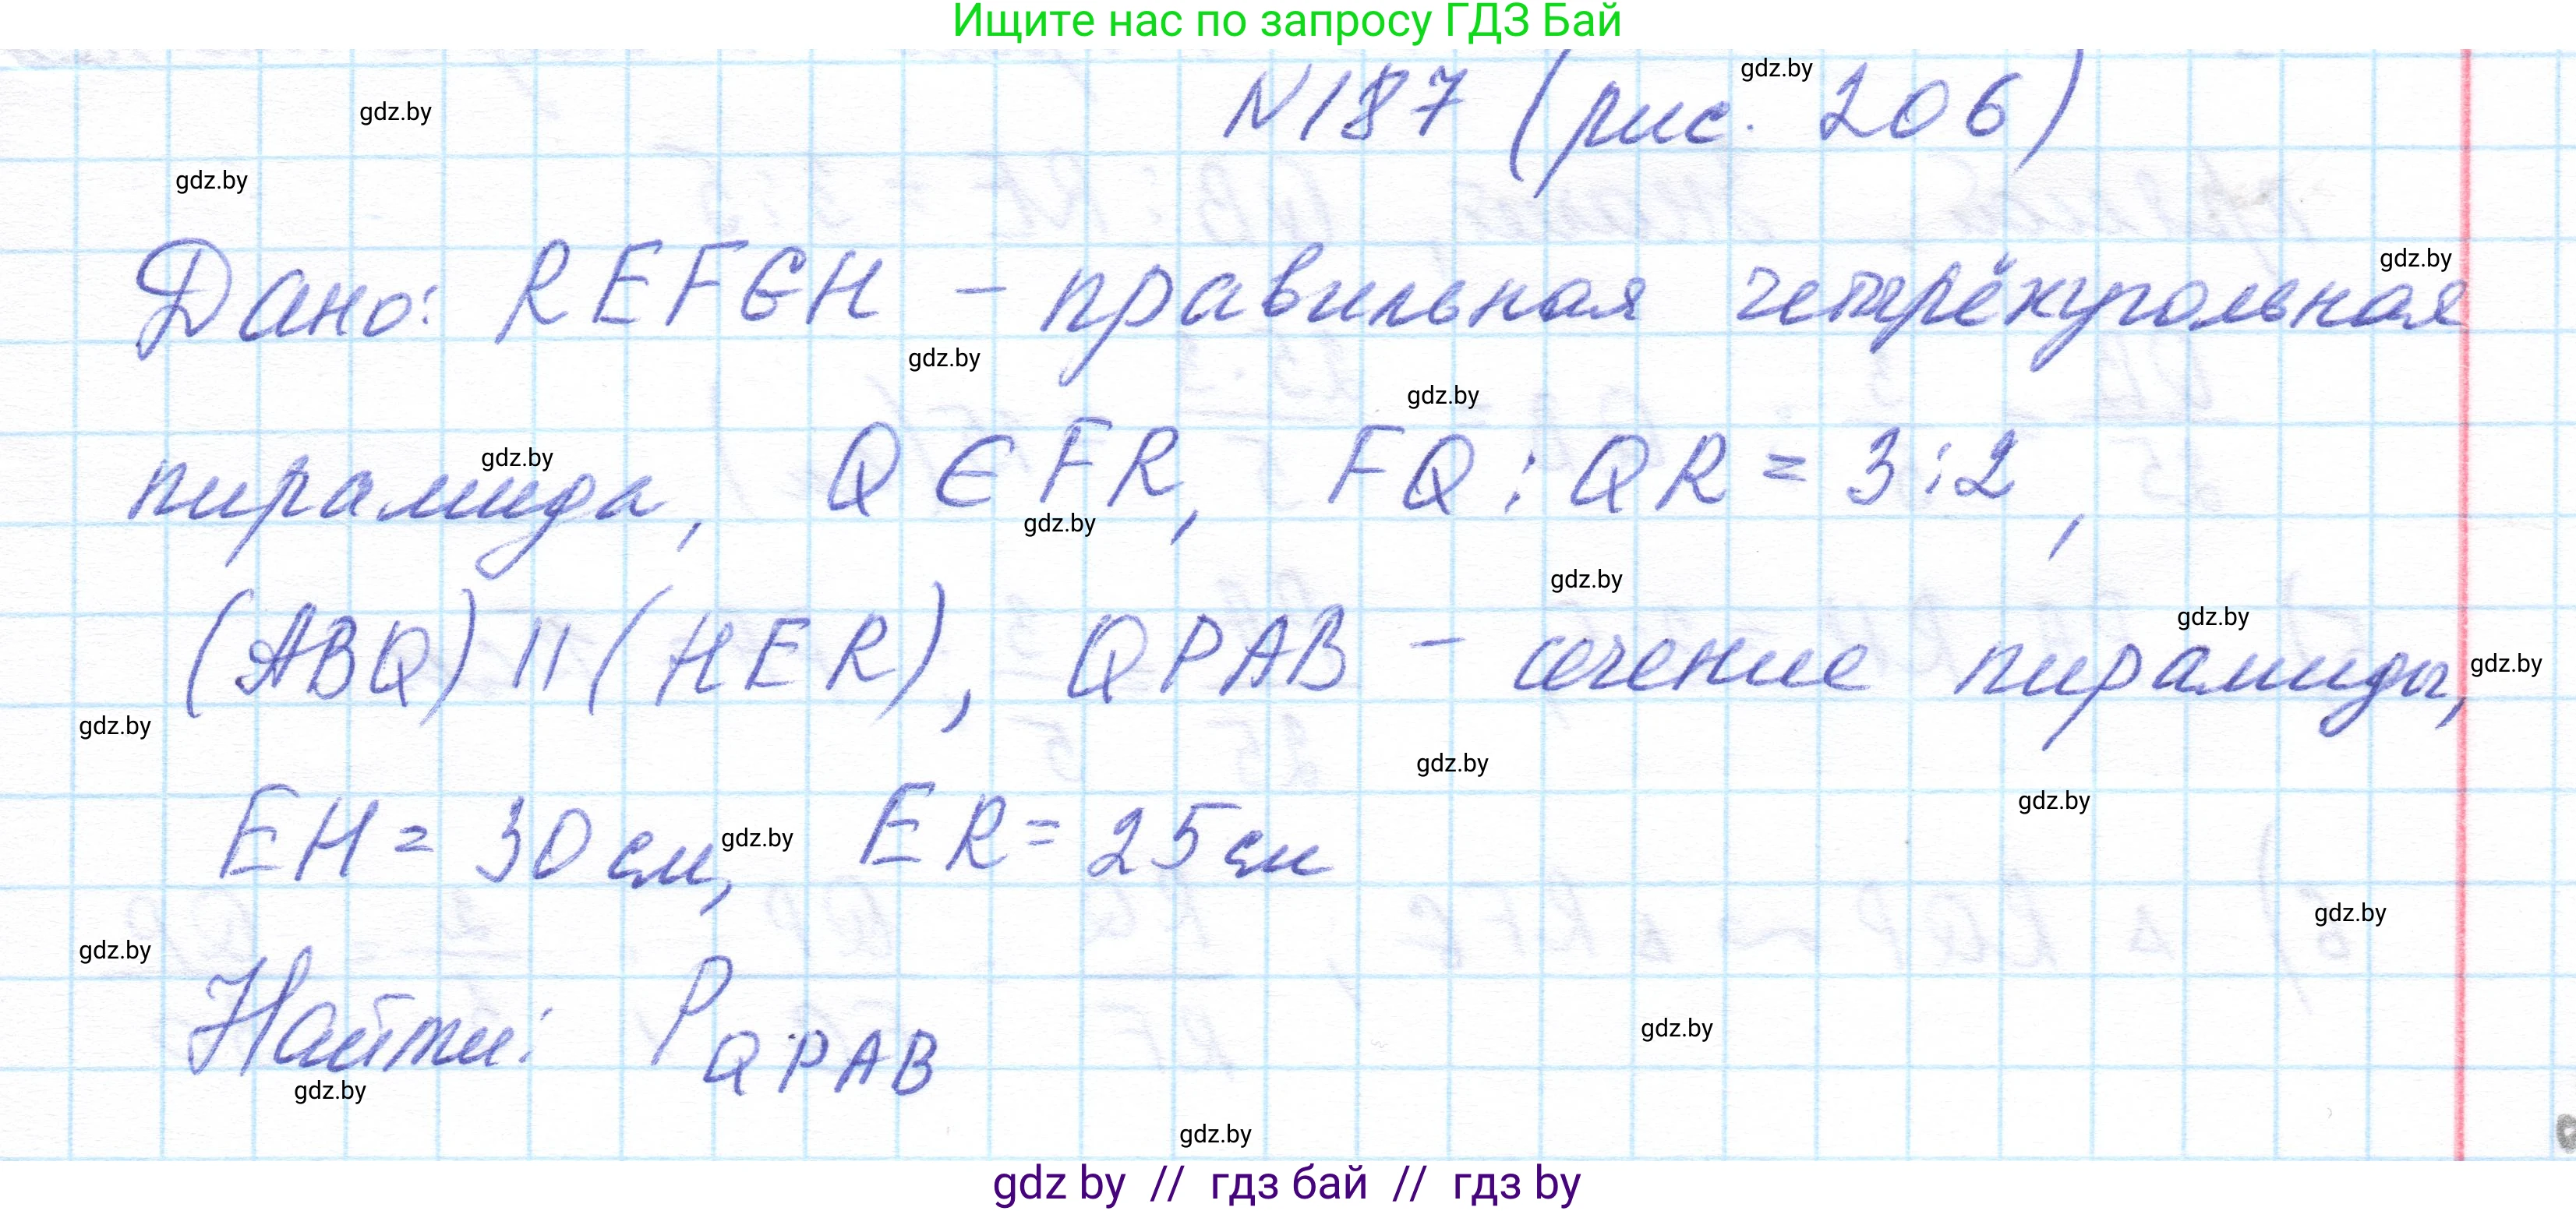 Ищите нас по запросу ГДЗ Бай
N187 (рис. 206)
gdz.by
gdz.by
gdz.by
Дано: REFGH - правильная четырёхугольная
gdz.by
gdz.by
gdz.by
пирамида, Q ∈ FR, FQ : QR = 3:2,
gdz.by
gdz.by
gdz.by
gdz.by
(ABQ) || (HER), QPAB - сечение пирамиды,
gdz.by
gdz.by
gdz.by
gdz.by
EH = 30 см, ER = 25 см
gdz.by
gdz.by
gdz.by
gdz.by
Найти: P QPAB
gdz.by
gdz.by
gdz.by
gdz by // гдз бай // гдз by